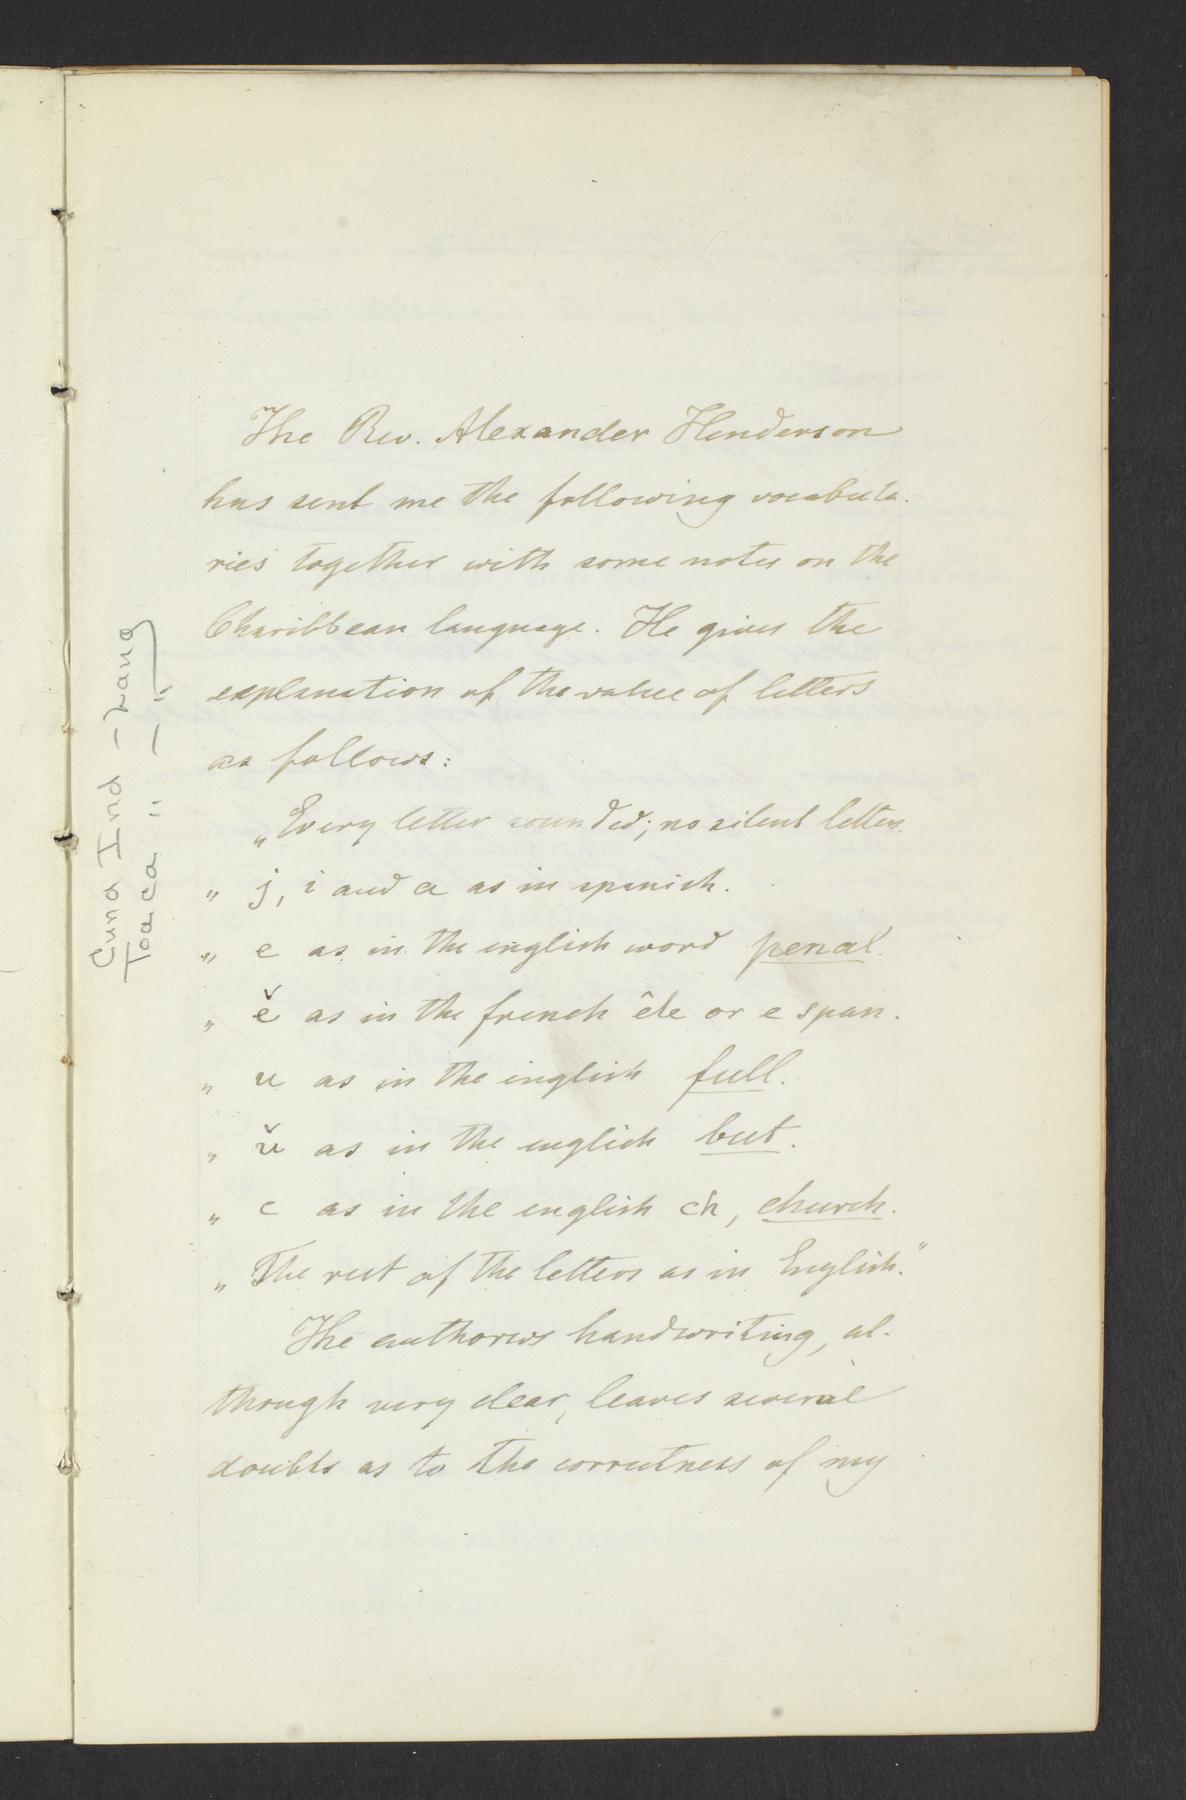 The Rev. Alexander Henderson
has sent me the following vocabula-
ries together with some notes on the
Charibbean language. He gives the
explanation of the value of letters
as follows:
„Every letter sounded; no silent letters.
„ j, i and a as in spanish.
„ e as in the english word penal.
„ ě as in the french êle or e span.
„ u as in the inglish full.
„ ǔ as in the english but.
„ c as in the english ch, church.
„ The rest of the letters as in English."
The authorws handwriting, al-
though very clear, leaves several
doubts as to the correctness of my
Cuna Ind - Lang
Toaca " - "